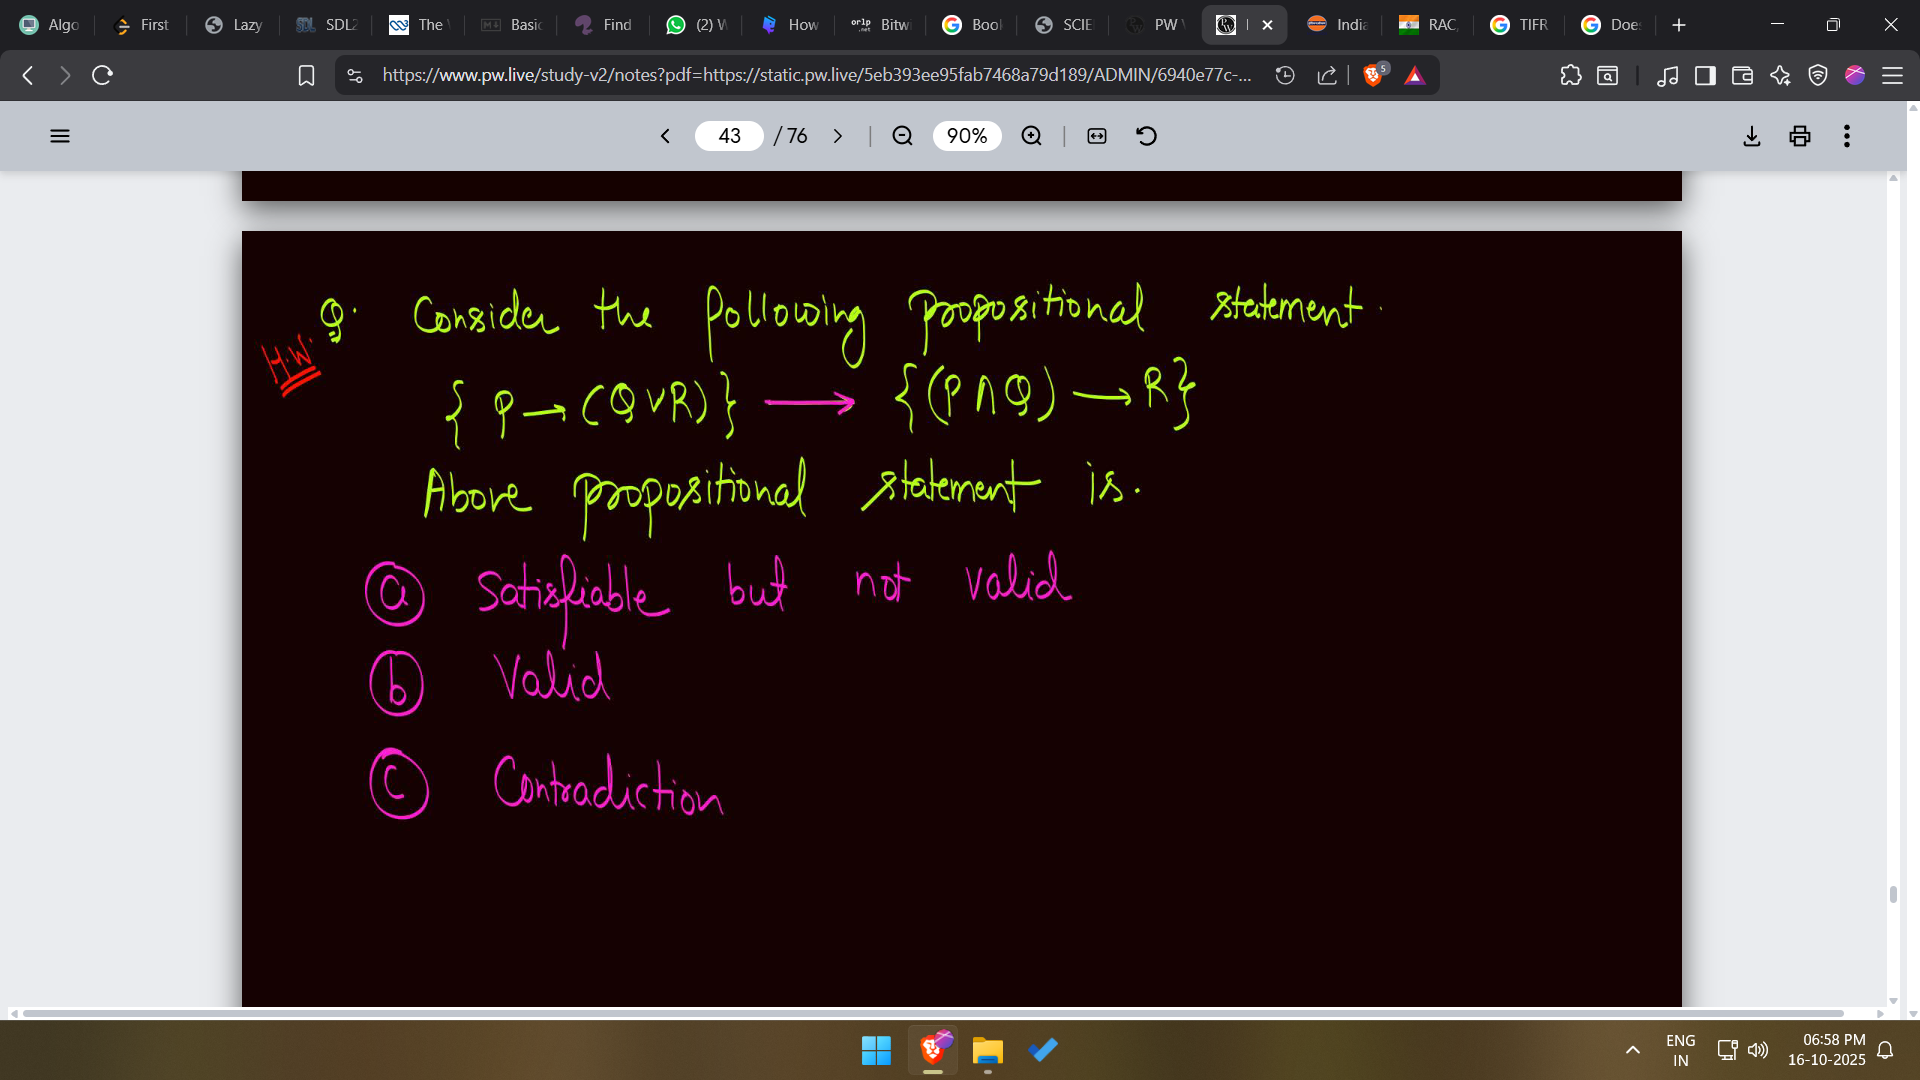 Algo
First
Lazy
SDL2
The
Basic
Find
(2) W
How
orlp .net
Bitwi
Book
SCIE
PW
India
RAC,
TIFR
Does
https://www.pw.live/study-v2/notes?pdf=https://static.pw.live/5eb393ee95fab7468a79d189/ADMIN/6940e77c-...
5
43 / 76
90%
Q. Consider the following propositional statement.
H.W.
{ P → (Q ∨ R) } → { (P ∧ Q) → R }
Above propositional statement is.
a Satisfiable but not valid
b Valid
c Contradiction
ENG
IN
06:58 PM
16-10-2025